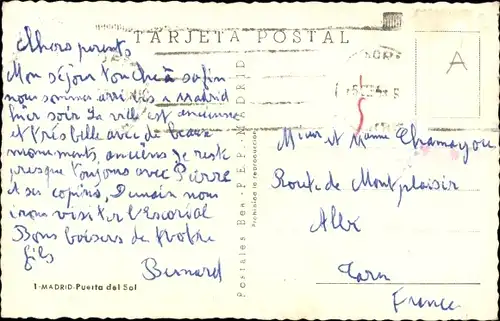 TARJETA POSTAL
Chers parents
Mon séjour touche à sa fin
nous sommes arrivés à Madrid
hier soir La ville est ancienne
et très belle avec de beaux
monuments, anciens je reste
presque toujours avec Pierre
et ses copins, Demain nous
irons visiter l'Escorial
Bons baisers de Votre
fils
Bernard
1-MADRID-Puerta del Sol
Postales Bea - P.E.P. MADRID
Prohibida la reproducción
A
Mieur et Mame Chamayou
Route de Montplaisir
Albi
Tarn
France